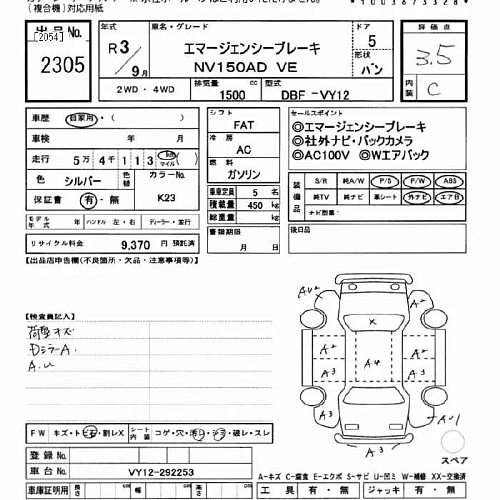 (複合機)対応用紙
*1003673328*
出品 No. [2054] 2305
年式 R3/9月
車名・グレード エマージェンシーブレーキ
NV150AD VE
ドア 5
形状 バン
評価点 3.5
内装 C
2WD・4WD
排気量 1500
型式 DBF-VY12
車歴 自家用・( )
車検 年 月
走行 5万4千113 km マイル
色 シルバー 色替 カラーNo. K23
保証書 有・無
モデル年式 年 ハンドル 左・右 ディーラー・並行
リサイクル料金 9,370 円 預託済
シフト FAT
冷房 AC
燃料 ガソリン
乗車定員 5 名
積載量 450 kg
総重量 kg
書類期限 月 日
セールスポイント
◎エマージェンシーブレーキ
◎社外ナビ・バックカメラ
◎AC100V ◎Wエアバック
装備品 S/R 純A/W P/S P/W ABS
純TV 純ナビ 革シート 外ナビ エアB
ナビ型番:
後日品
【出品店申告欄(不良箇所・欠品・注意事項等)】
【検査員記入】
荷室キズ
DミラーA.
A.U
AU2 A2 X A2
A3 A4 A2
A3 A3
AU1
A3
スペア
FW キズ・トビ石・割レX シート内装 コゲ・穴・汚レ・シミ・破レ・スレ
登録 No.
車台 No. VY12-292253
A-キズ C-腐食 E-エクボ S-サビ U-凹ミ W-補修 XX-交換済
車庫証明用 長さ cm 幅 cm 高さ cm
工具 有・無 ジャッキ 有・無